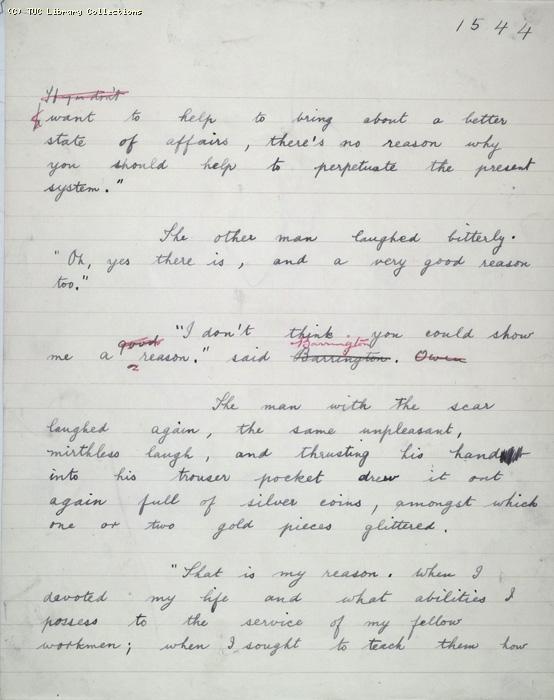 (C) TUC Library Collections
1544
If you don't
want to help to bring about a better
state of affairs, there's no reason why
you should help to perpetuate the present
system."
The other man laughed bitterly.
"Oh, yes there is, and a very good reason
too."
"I don't think you could show
Barrington
me a good reason." said Barrington. Owen
The man with the scar
laughed again, the same unpleasant,
mirthless laugh, and thrusting his hand
into his trouser pocket drew it out
again full of silver coins, amongst which
one or two gold pieces glittered.
"That is my reason. When I
devoted my life and what abilities I
possess to the service of my fellow
workmen; when I sought to teach them how